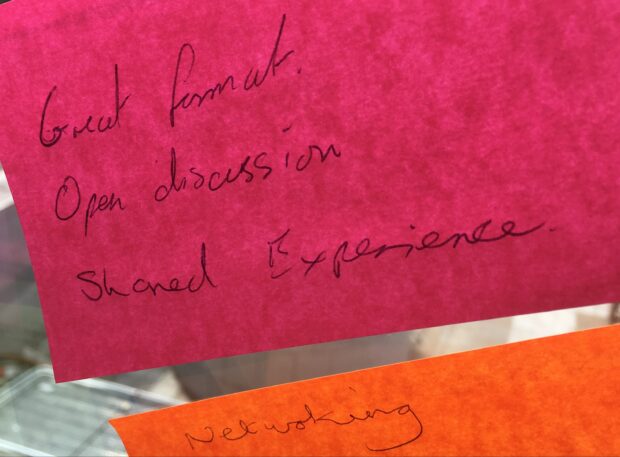 Great format.
Open discussion
Shared Experience.
Netwoking